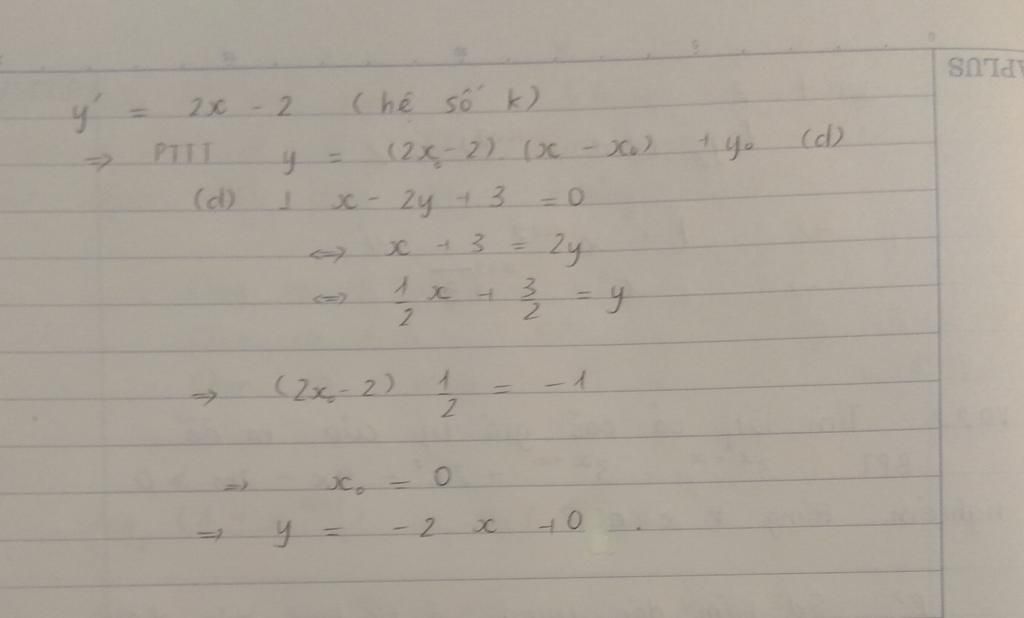 APLUS
y' = 2x - 2 (hệ số k)
⇒ PTTT y = (2x₀ - 2) (x - x₀) + y₀ (d)
(d) ⊥ x - 2y + 3 = 0
⇔ x + 3 = 2y
⇔ 1/2 x + 3/2 = y
⇒ (2x₀ - 2) 1/2 = -1
⇒ x₀ = 0
⇒ y = -2 x + 0 .